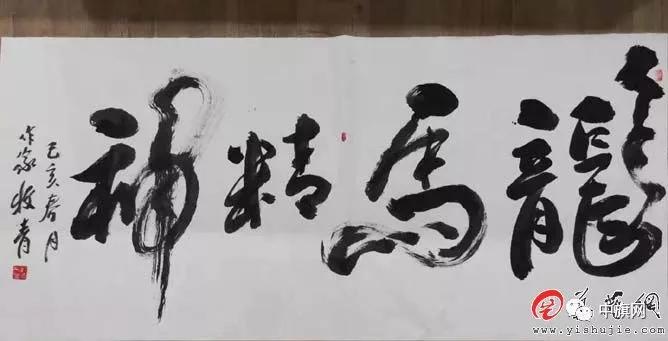 龍馬精神
己亥春月
作家牧青
艺术网
中旗网
www.yishujie.com